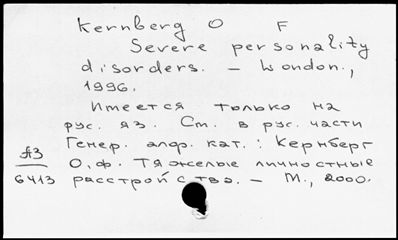 Kernberg O F
Severe personality
disorders. – London.,
1996.
Имеется только на
рус. яз. См. в рус. части
Генер. алф. кат.: Кернберг
О.Ф. Тяжелые личностные
расстройства. – М., 2000.
А3
6413